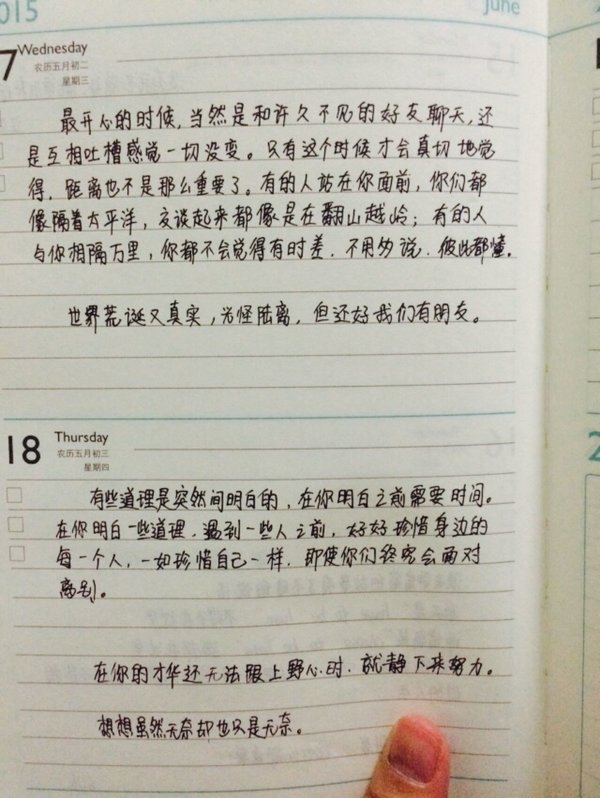 2015
June
7 Wednesday
农历五月初二
星期三
最开心的时候,当然是和许久不见的好友聊天,还
是互相吐槽感觉一切没变。只有这个时候才会真切地觉
得,距离也不是那么重要了。有的人站在你面前,你们都
像隔着太平洋,交谈起来都像是在翻山越岭;有的人
与你相隔万里,你都不会觉得有时差.不用多说.彼此都懂。
世界荒诞又真实,光怪陆离,但还好我们有朋友。
18 Thursday
农历五月初三
星期四
有些道理是突然间明白的,在你明白之前需要时间。
在你明白一些道理,遇到一些人之前,好好珍惜身边的
每一个人,一如珍惜自己一样,即使你们终究会面对
离别。
在你的才华还无法跟上野心时.就静下来努力。
想想虽然无奈却也只是无奈。